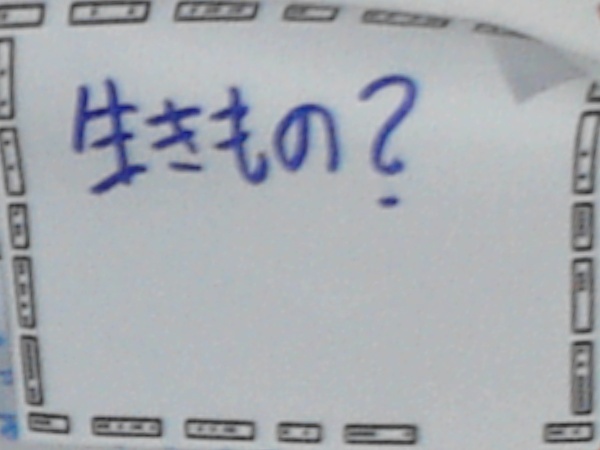 生きもの?